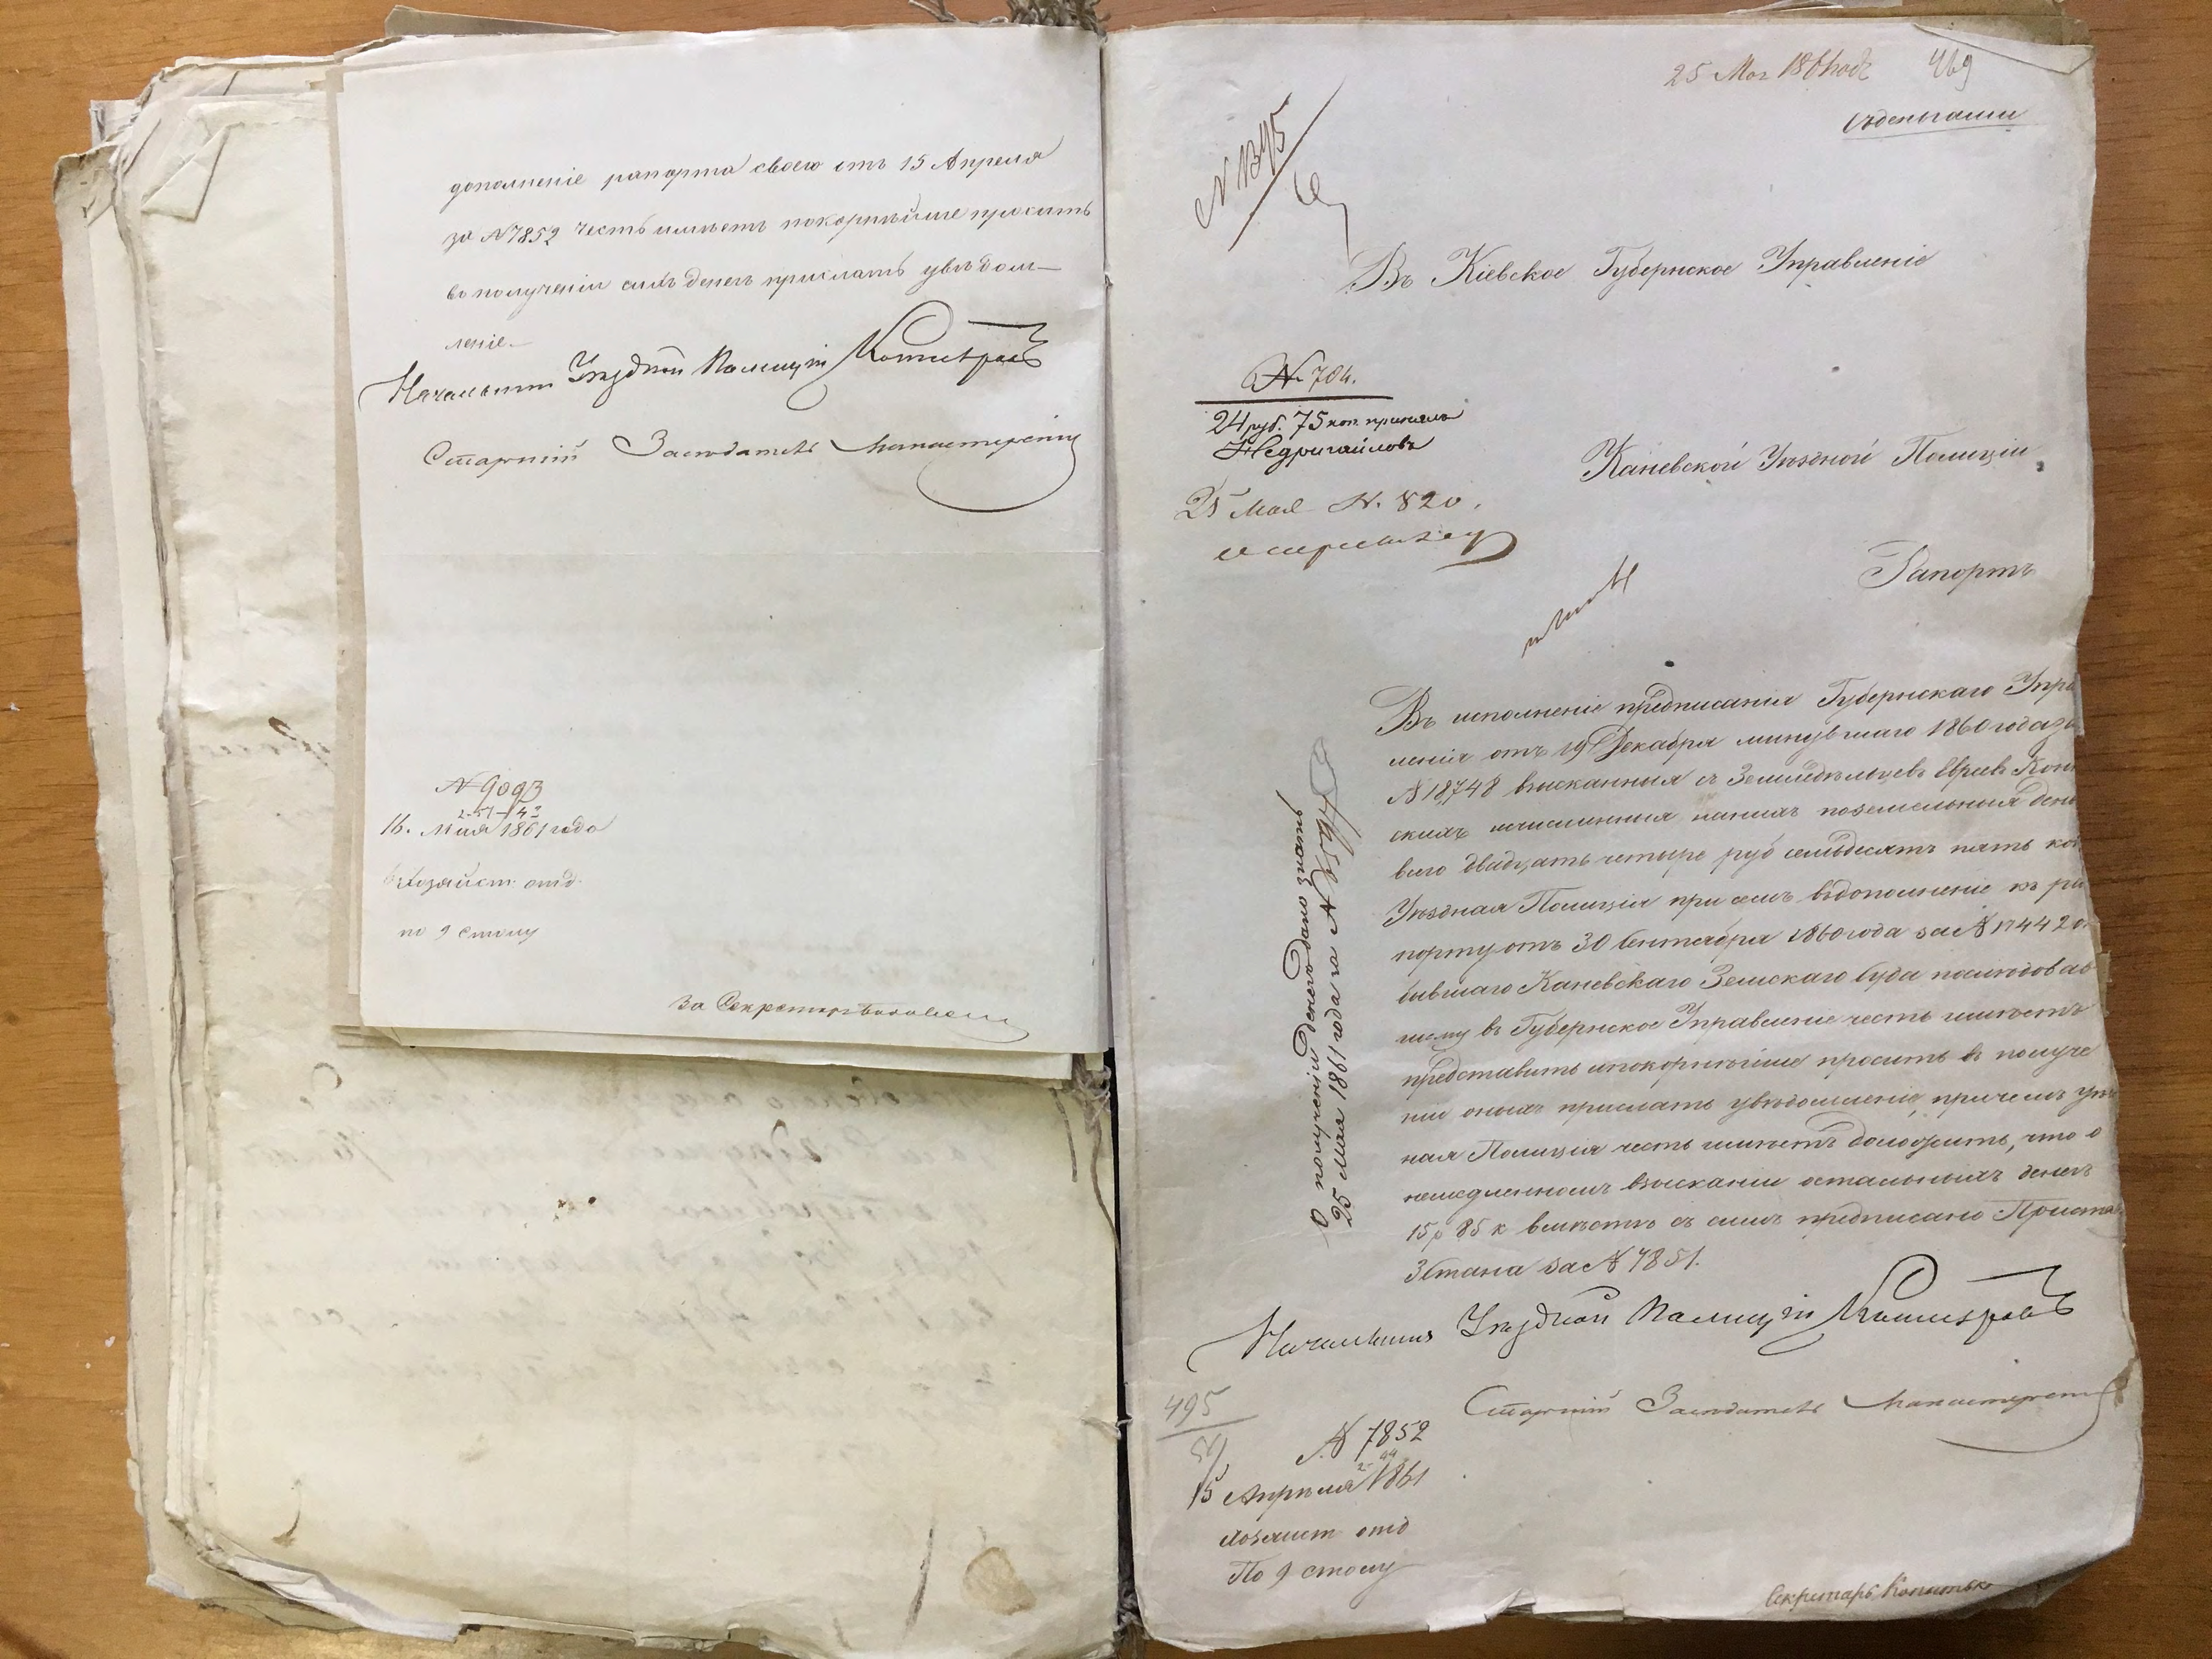 дополненіе рапорта своего отъ 15 Апреля
за №7852 честь имѣетъ покорнѣйше просить
въ полученіи сихъ денегъ прислать увѣдом-
леніе.
Начальникъ Уѣздной Полиціи
Старшій Засѣдатель
№ 9093
16. Мая 1861 года
Хозяйст. отд.
по 9 столу
За Секретаря
25 Мая 1861 года 469
съ деньгами
№ 1395
Въ Кіевское Губернское Управленіе
№ 704.
24 руб. 75 коп. принялъ
Недригайловъ
25 Мая №. 820.
Каневской Уѣздной Полиціи
Рапортъ
Въ исполненіе предписанія Губернскаго Упра
ленія отъ 19 Декабря минувшаго 1860 года за
№ 18,748 взысканныя съ Земледѣльцевъ Евреевъ
скихъ исчисленныя на нихъ поземельныя день
всего двадцать четыре руб семьдесятъ пять коп
Уѣздная Полиція при семъ въ дополненіе къ ра
порту отъ 30 Сентября 1860 года за № 17442
бывшаго Каневскаго Земскаго Суда послѣдовав
шему въ Губернское Управленіе честь имѣетъ
представить и покорнѣйше просить въ получе
ніи оныхъ прислать увѣдомленіе, причемъ Уѣзд
ная Полиція честь имѣетъ доложить, что о
немедленномъ взысканіи остальныхъ денегъ
15 р 85 к вмѣстѣ съ симъ предписано Приста
3 Стана за № 7851.
О полученіи денегъ дано знать
25 Мая 1861 года за №
Начальникъ Уѣздной Полиціи
Старшій Засѣдатель
495
№ 7852
15 Апрѣля 1861
Хозяист отд
По 9 столу
Секретарь